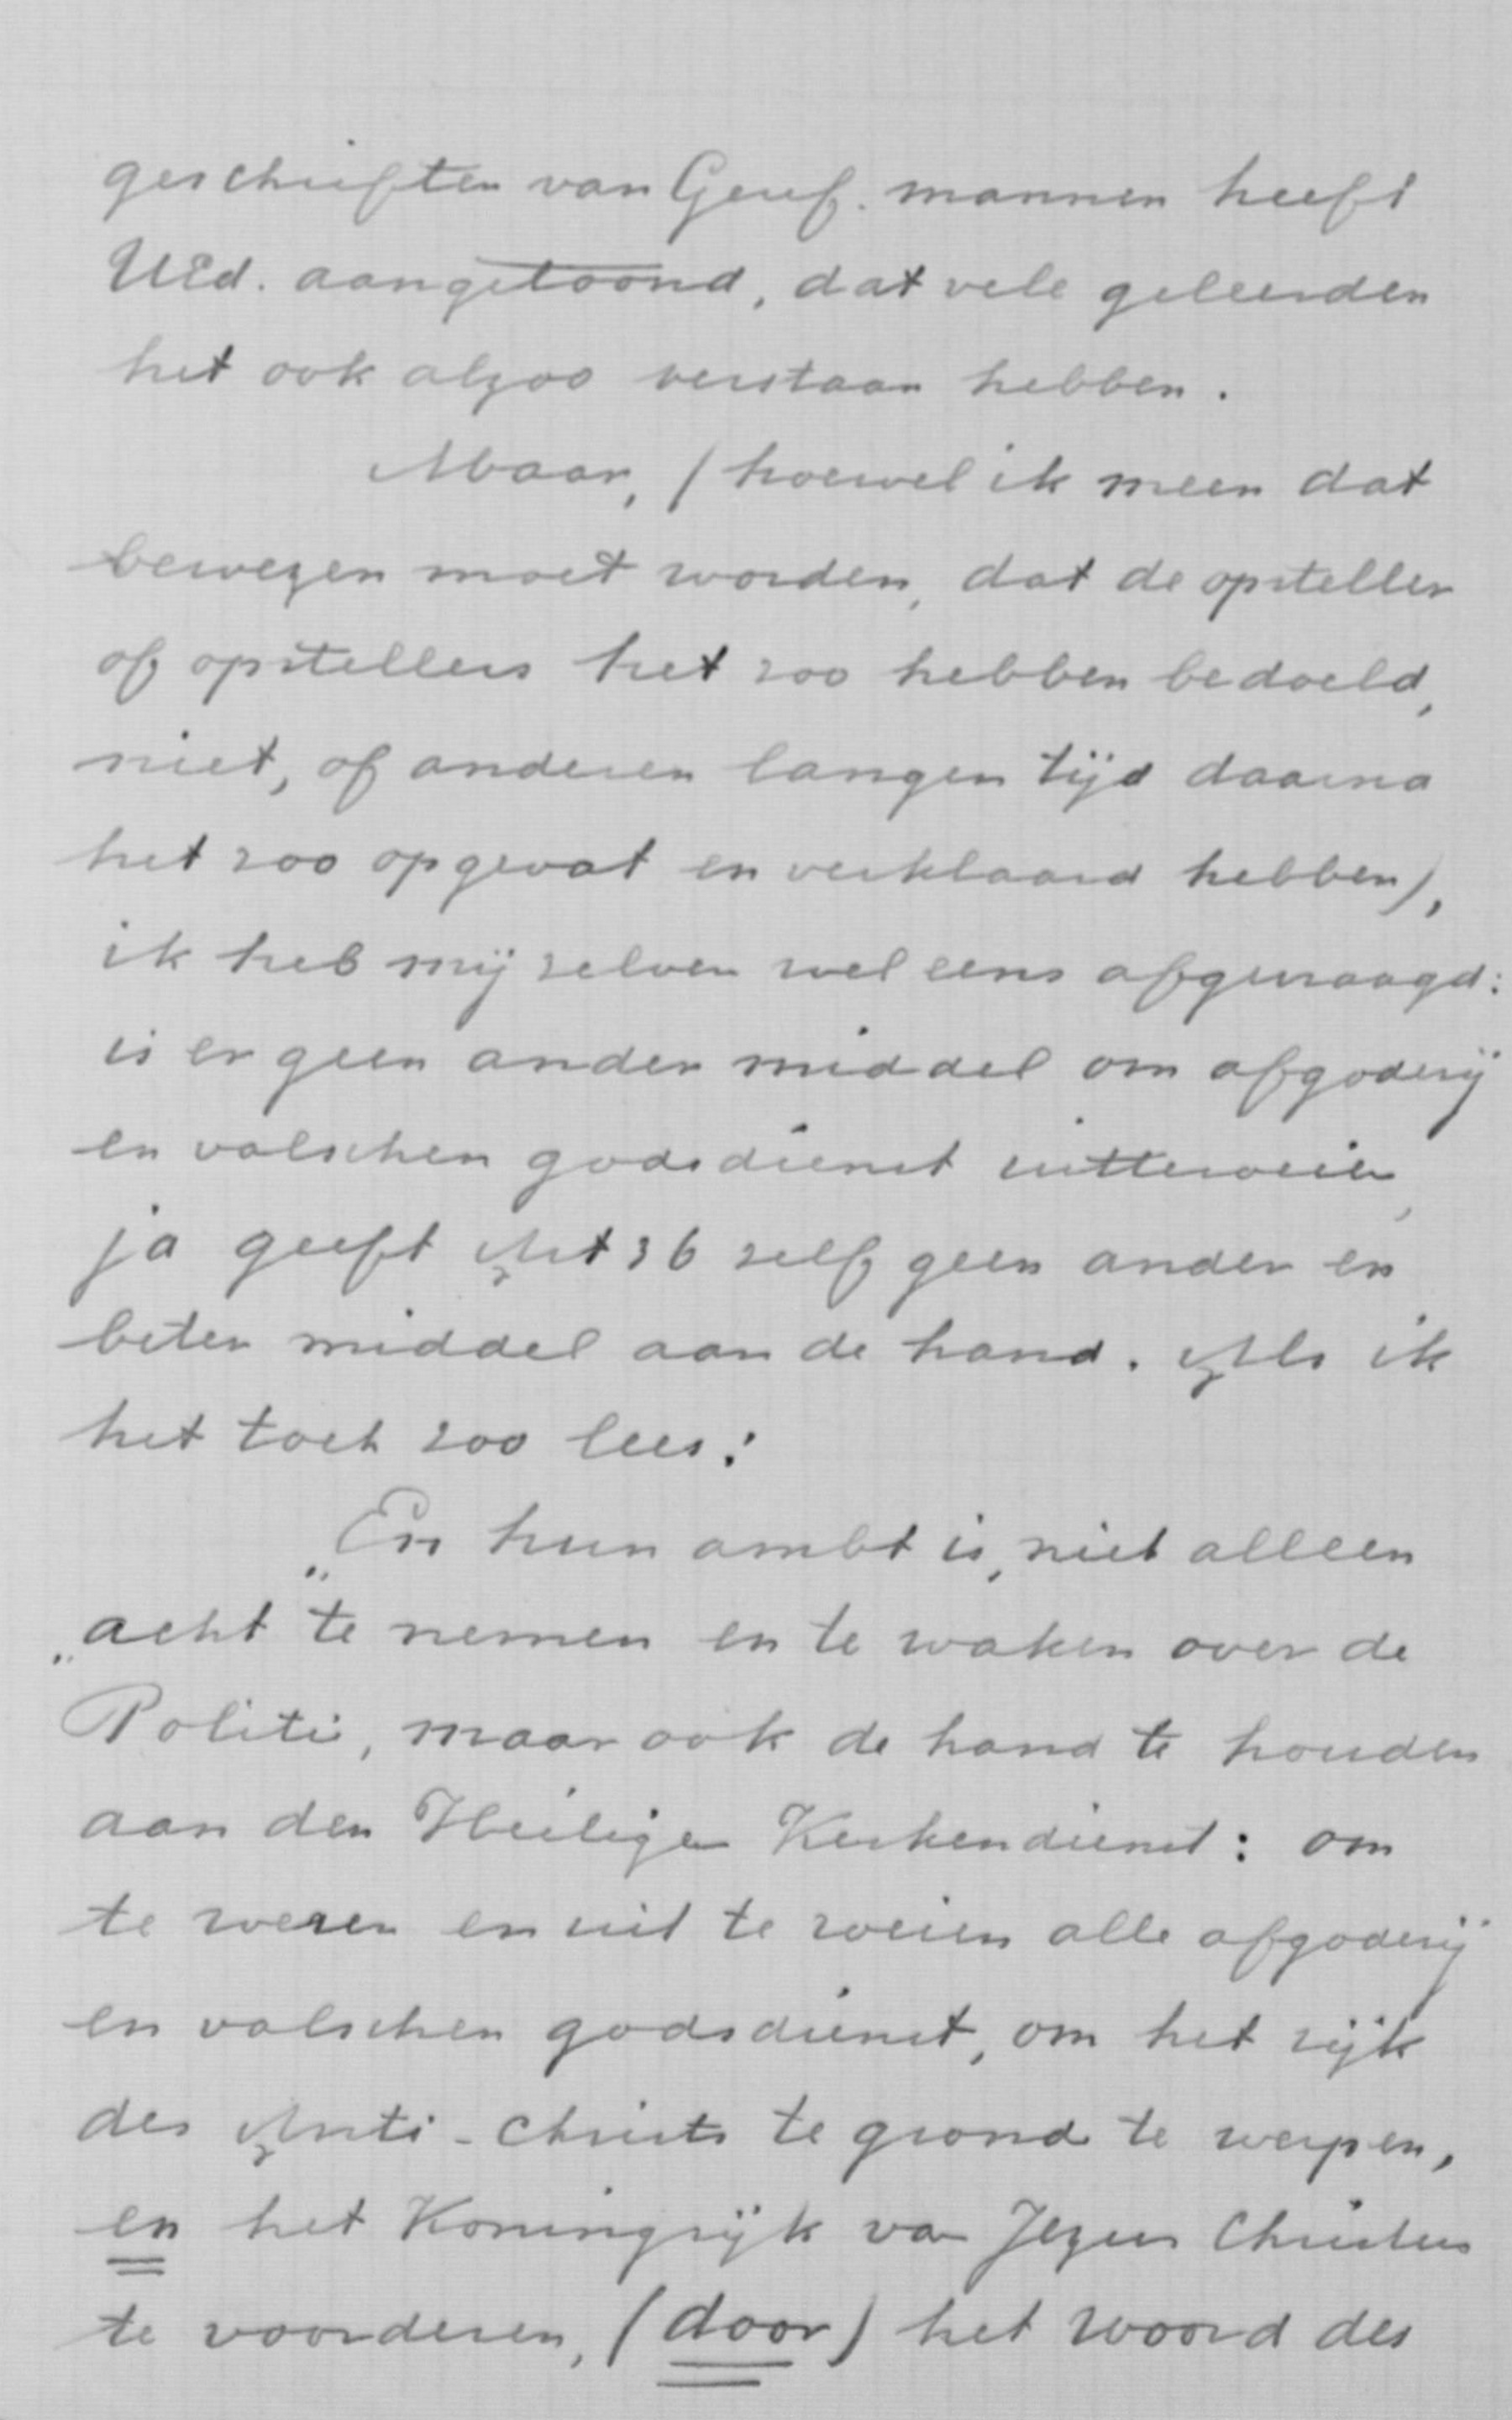 geschriften van Geref. mannen heeft
UEd. aangetoond, dat vele geleerden
het ook alzoo verstaan hebben.
Maar, (hoewel ik meen dat
bewezen moet worden, dat de opsteller
of opstellers het zoo hebben bedoeld,
niet, of anderen langen tijd daarna
het zoo opgevat en verklaard hebben),
ik heb mij zelven wel eens afgevraagd:
is er geen ander middel om afgoderij
en valschen godsdienst uitteroeien,
ja geeft Art 36 zelf geen ander en
beter middel aan de hand. Als ik
het toch zoo lees:
„En hun ambt is, niet alleen
„acht te nemen en te waken over de
Politie, maar ook de hand te houden
aan den Heiligen Kerkendienst: om
te weren en uit te roeien alle afgoderij
en valschen godsdienst, om het rijk
des Anti-Christs te grond te werpen,
en het Koningrijk van Jezus Christus
te voorderen, (door) het woord des